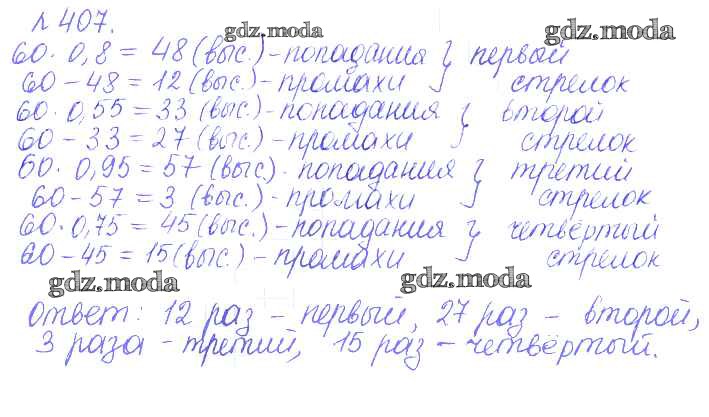 № 407.
gdz.moda
gdz.moda
60 · 0,8 = 48 (выс.) - попадания } первый
60 - 48 = 12 (выс.) - промахи } стрелок
60 · 0,55 = 33 (выс.) - попадания } второй
60 - 33 = 27 (выс.) - промахи } стрелок
60 · 0,95 = 57 (выс.) - попадания } третий
60 - 57 = 3 (выс.) - промахи } стрелок
60 · 0,75 = 45 (выс.) - попадания } четвёртый
60 - 45 = 15 (выс.) - промахи } стрелок
gdz.moda
gdz.moda
Ответ: 12 раз - первый, 27 раз - второй,
3 раза - третий, 15 раз - четвёртый.